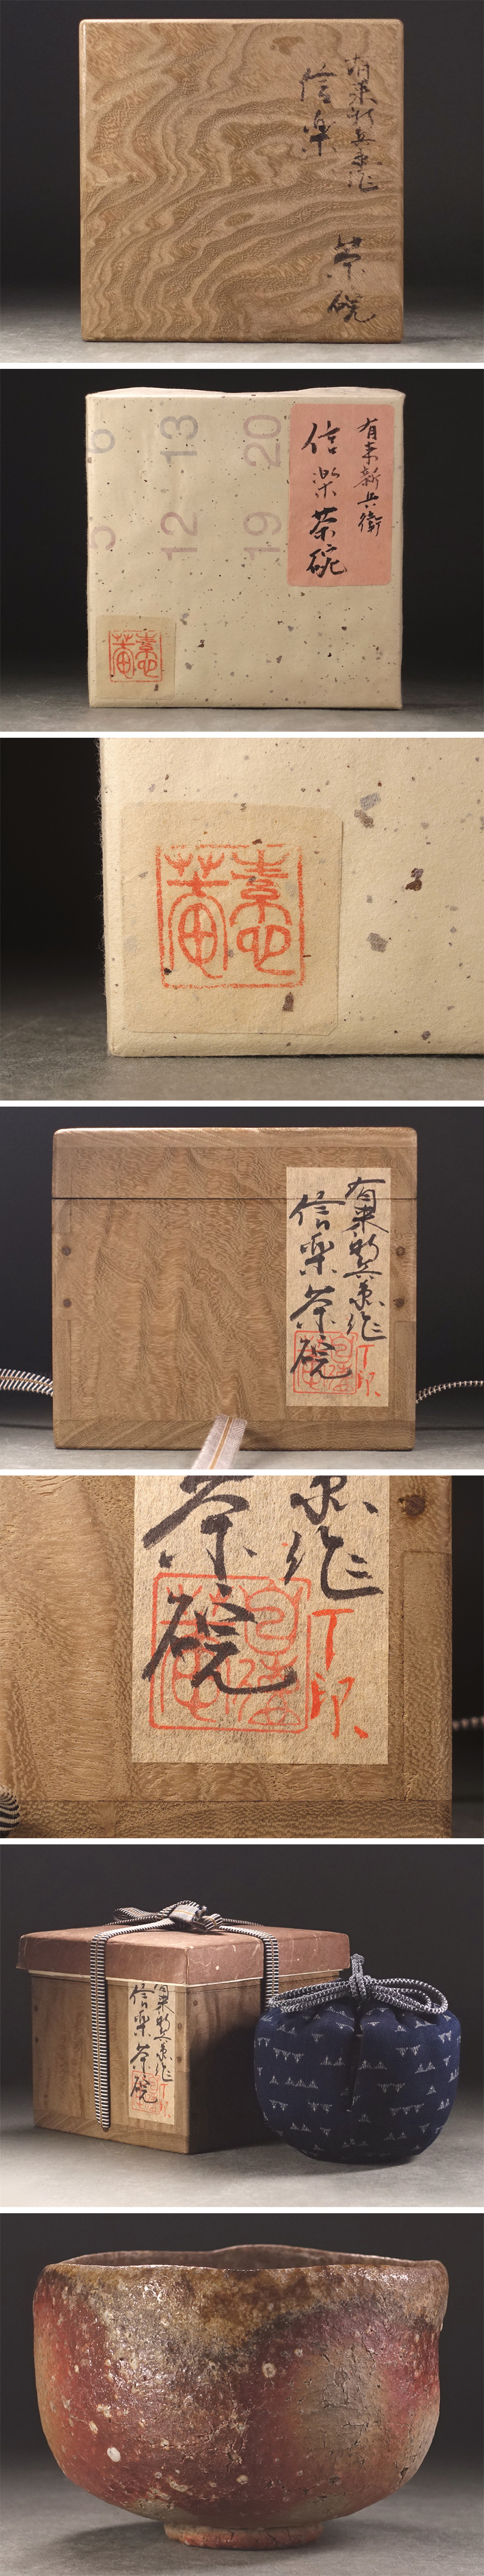 有来新兵衛作
信楽
茶碗
6
13
20
5
12
19
有来新兵衛
信楽茶碗
素菴
素菴
有来新兵衛作
信楽茶碗
丁印
衛作
茶碗
丁印
有来新兵衛作
信楽茶碗
丁印